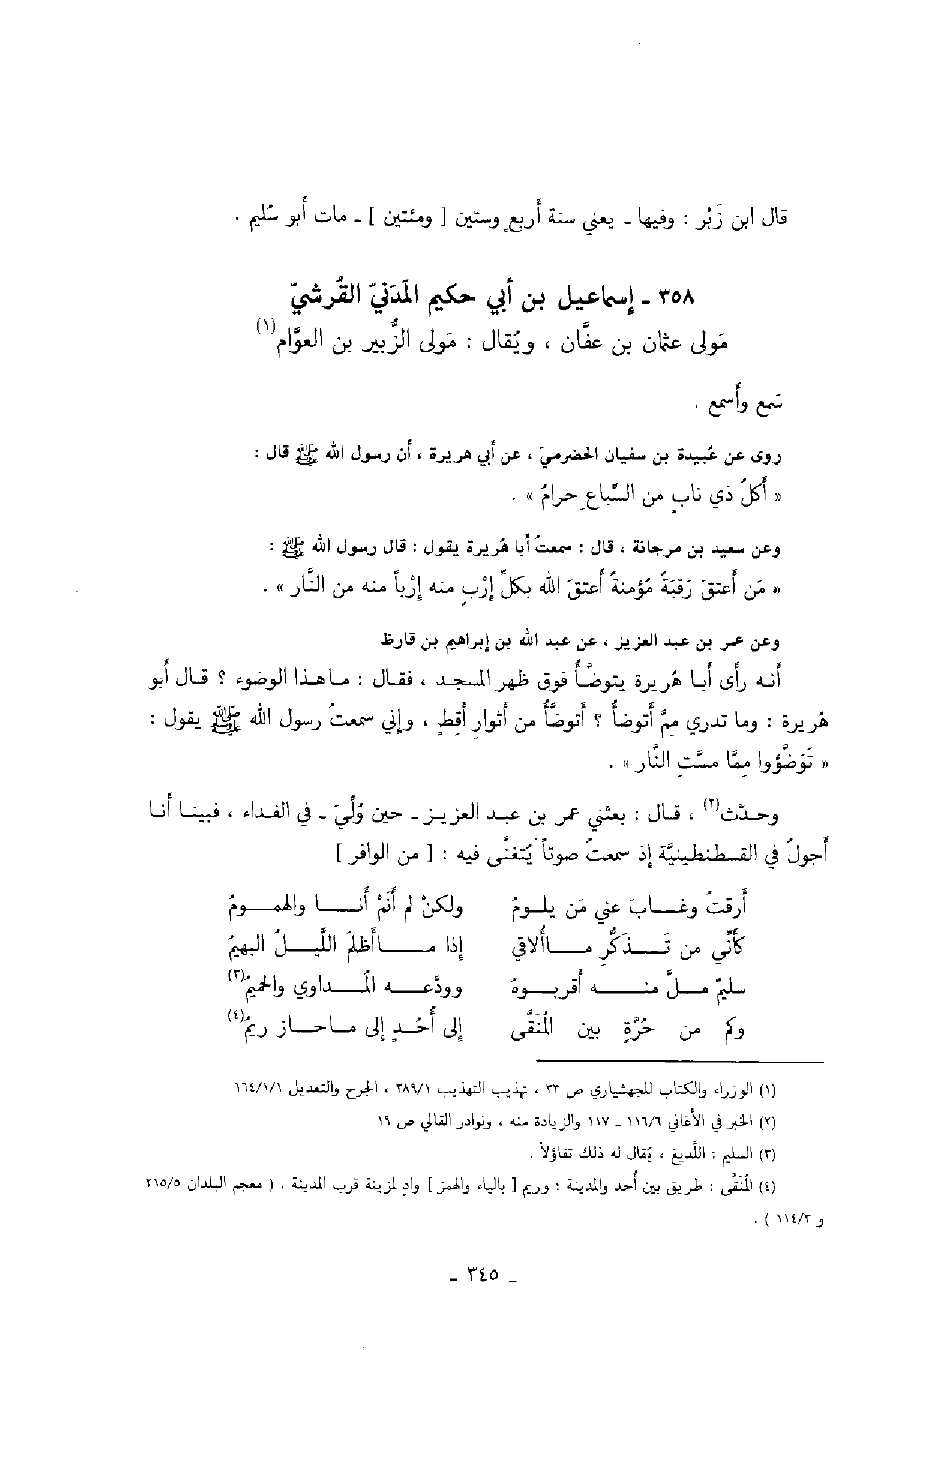 قال ابن زَبْر : وفيها - يعني سنة أربعٍ وستين [ ومئتين ] - مات أبو سُليم .
٣٥٨ - إسماعيل بن أبي حكيم المَدَنيّ القُرشيّ
مَولى عثمان بن عفَّان ، ويُقال : مَولى الزُّبير بن العوَّام(١)
سَمع وأسمع .
روى عن عَبيدة بن سفيان الحَضرميّ ، عن أبي هريرة ، أن رسول الله ﷺ قال :
« أكلُ ذي نابٍ من السِّباعِ حرامٌ » .
وعن سعيد بن مرجانة ، قال : سمعتُ أبا هُريرة يقول : قال رسول الله ﷺ :
« مَن أعتقَ رَقبَةً مُؤمنةً أعتقَ الله بكلِّ إرْبٍ منه إرْباً منه من النَّار » .
وعن عمر بن عبد العزيز ، عن عبد الله بن إبراهيم بن قارظ
أنه رأى أبا هُريرة يتوضَّأ فوق ظهرِ المسجد ، فقال : ماهذا الوضوء ؟ قال أبو
هُريرة : وما تدري مِمَّ أتوضأُ ؟ أتوضَّأُ من أثوارِ أقِطٍ ، وإني سمعتُ رسول الله ﷺ يقول :
« تَوَضَّؤوا مِمَّا مسَّتِ النَّار » .
وحدَّث(٢) ، قال : بعثني عمر بن عبد العزيز - حين وُلِّيَ - في الفداء ، فبينا أنا
أجولُ في القسطنطينيَّة إذ سمعتُ صوتاً يُتغنَّى فيه : [ من الوافر ]
أرِقتُ وغابَ عني مَن يلومُ ولكنْ لم أنَمْ أنا والهمومُ
كأنّي من تَذَكُّرِ ماأُلاقي إذا ماأظلمَ اللَّيلُ البهيمُ
سليمٌ ملَّ منه أقربوهُ وودَّعه المُداوي والحميمُ(٣)
وكم من حُرَّةٍ بين المُنَقَّى إلى أُحُدٍ إلى ماحاز ريمُ(٤)
(١) الوزراء والكتاب للجهشياري ص ٣٣ ، تهذيب التهذيب ٢٨٩/١ ، الجرح والتعديل ١٦٤/١/١
(٢) الخبر في الأغاني ١١٦/٦ - ١١٧ والزيادة منه ، ونوادر القالي ص ١٩
(٣) السليم : اللّديغ ، يُقال له ذلك تفاؤلاً .
(٤) المُنَقَّى : طريق بين أحد والمدينة : وريم [ بالياء والهمز ] وادٍ لمزينة قرب المدينة . ( معجم البلدان ٢١٥/٥
و ١١٤/٣ ) .
- ٣٤٥ -